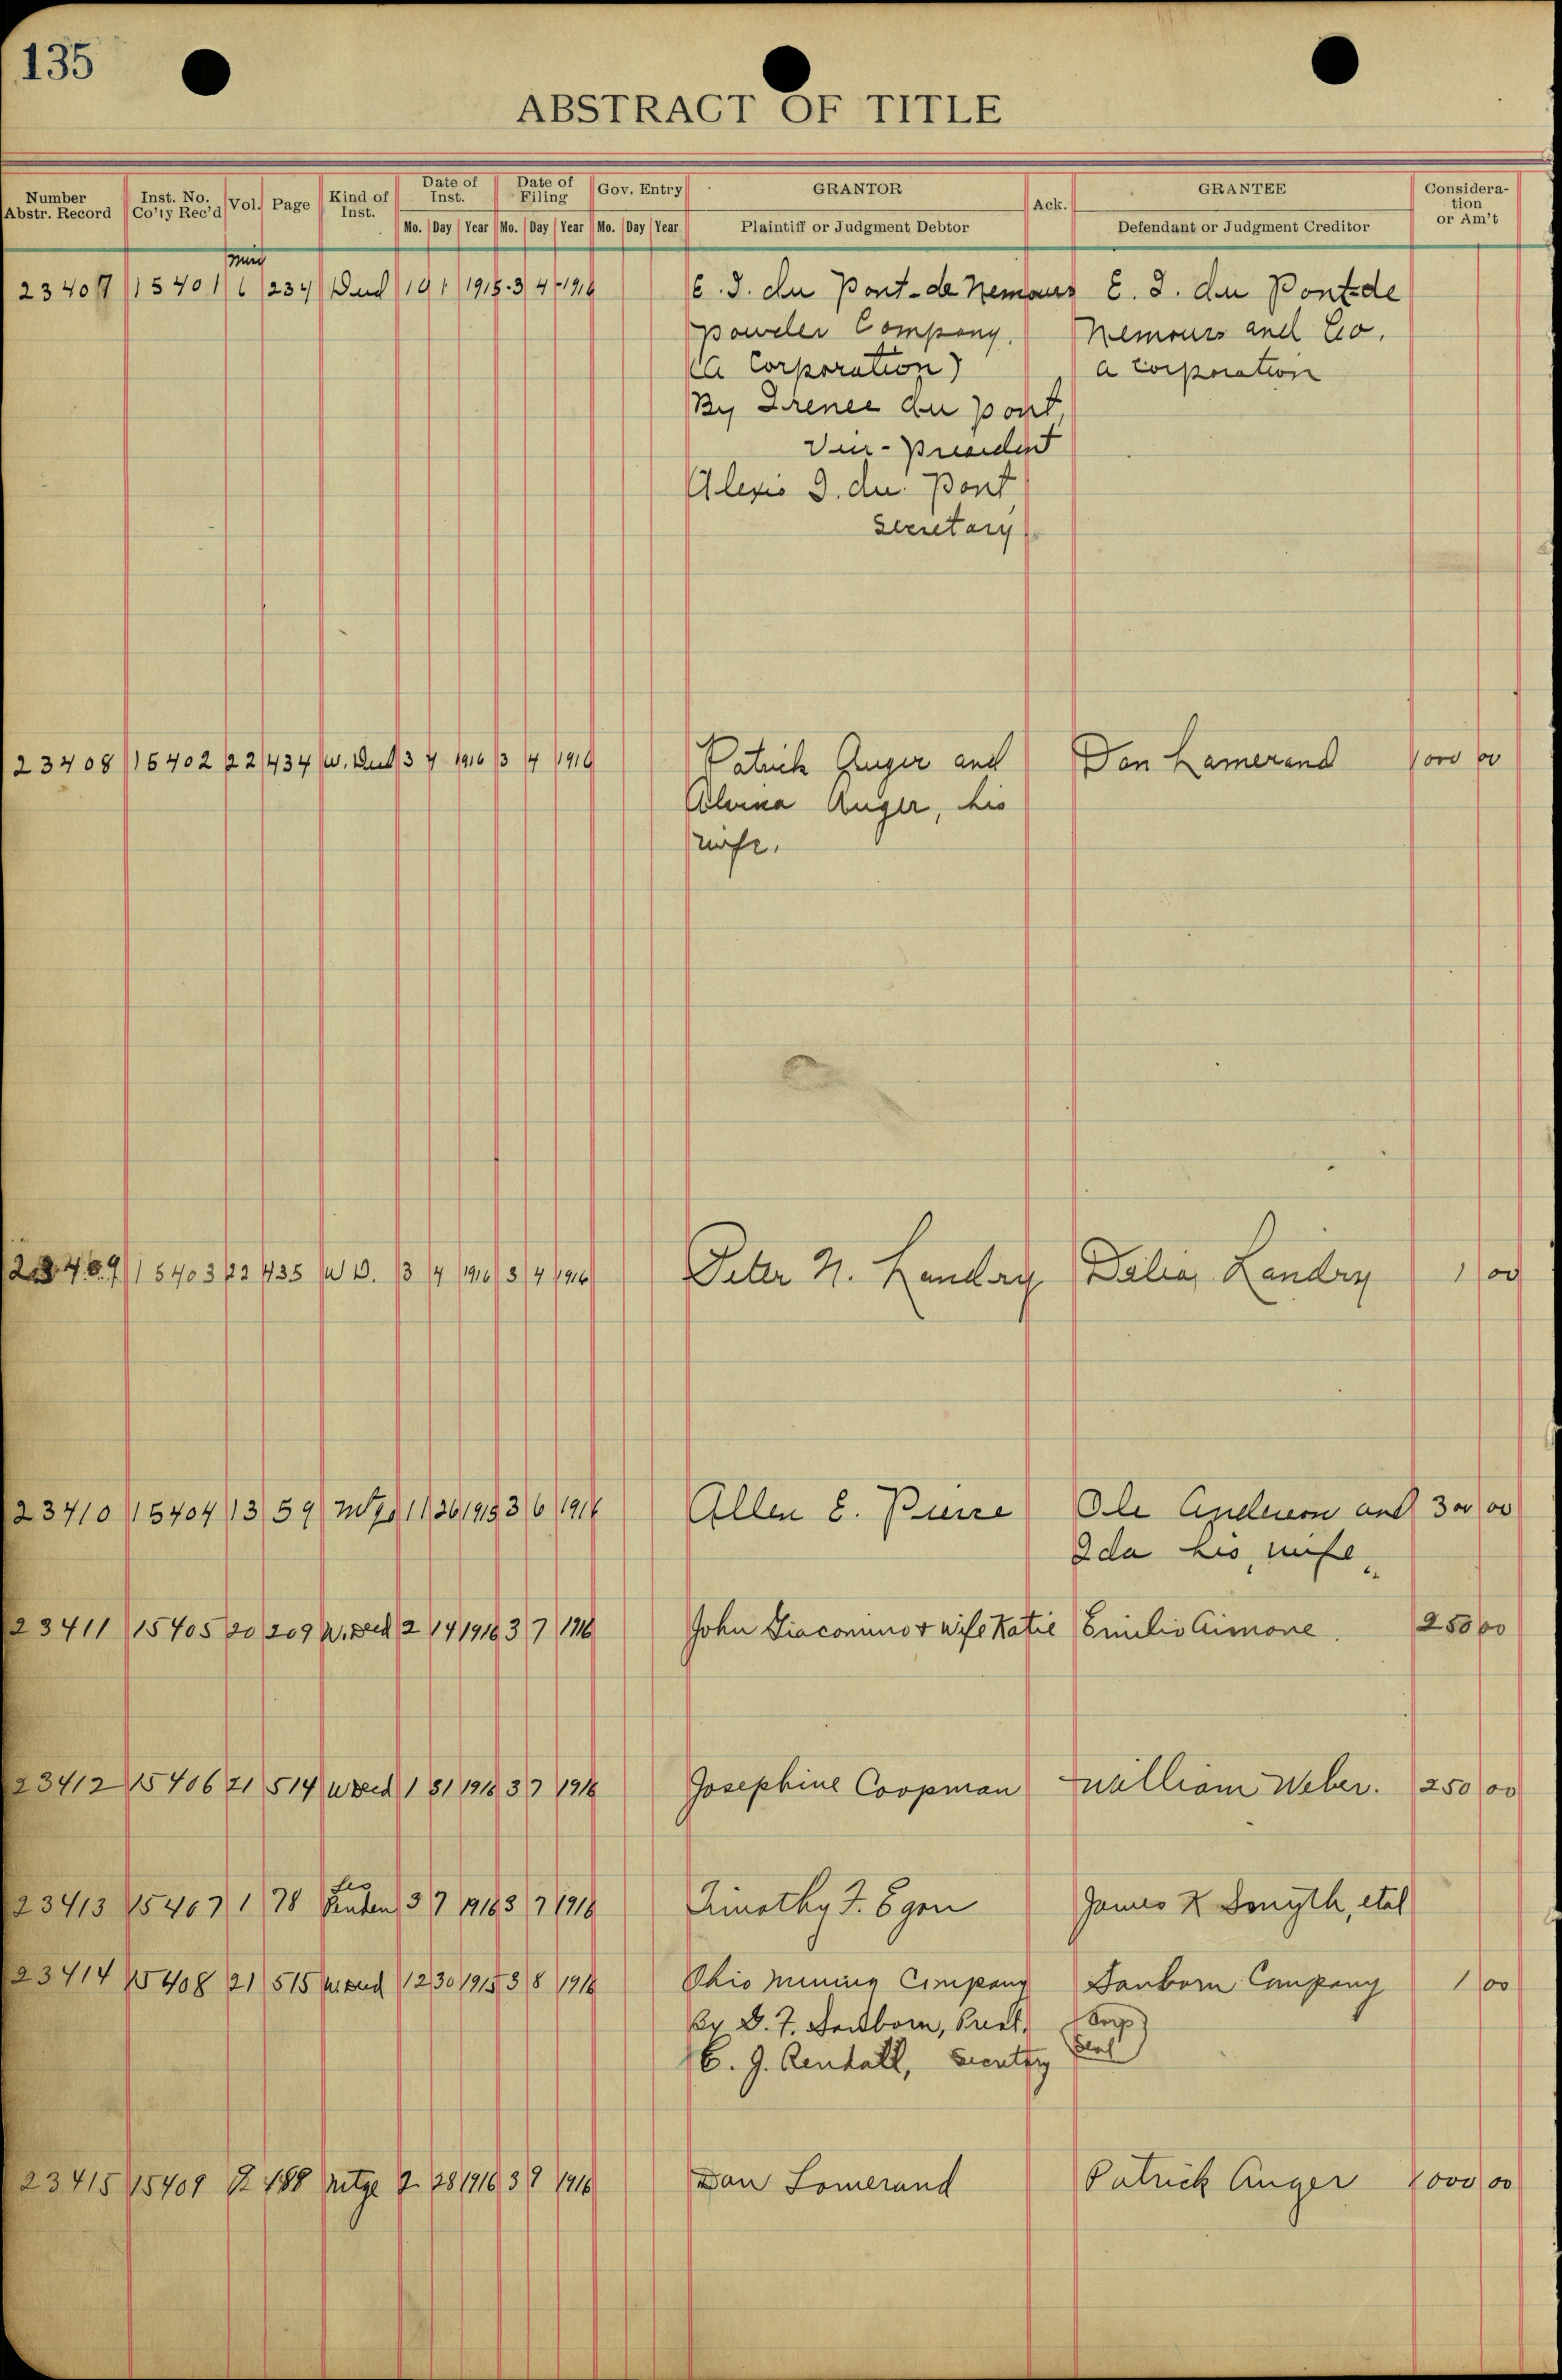 135
ABSTRACT OF TITLE
Number Abstr. Record Inst. No. Co'ty Rec'd Vol. Page Kind of Inst. Date of Inst. Date of Filing Gov. Entry GRANTOR Ack. GRANTEE Consideration or Am't
Mo. Day Year Mo. Day Year Mo. Day Year Plaintiff or Judgment Debtor Defendant or Judgment Creditor
23407 15401 6 234 Deed 10 1 1915 3 4 1916 E. I. du Pont-de Nemours E. I. du Pont de
powder Company. Nemours and Co.
(A Corporation) a corporation
By Irenee du pont,
Vice-president
Alexis I. du Pont
Secretary
23408 15402 22 434 W. Deed 3 4 1916 3 4 1916 Patrick Auger and Dan Lamerand 1000 00
Alvina Auger, his
wife.
23409 15403 22 435 W D. 3 4 1916 3 4 1916 Peter N. Landry Delia Landry 1 00
23410 15404 13 59 Mtge 11 26 1915 3 6 1916 Allen E. Pierce Ole Anderson and 300 00
Ida his wife
23411 15405 20 209 W. Deed 2 14 1916 3 7 1916 John Giacomino & wife Katie Emilio Aimone. 250 00
23412 15406 21 514 W Deed 1 31 1916 3 7 1916 Josephine Coopman William Weber. 250 00
23413 15407 1 78 Lis Penden 3 7 1916 3 7 1916 Timothy F. Egan James K Smyth, etal
23414 15408 21 515 W. Deed 12 30 1915 3 8 1916 Ohio Mining Company Sanborn Company 1 00
By D. F. Sanborn, Prest. Corp
E. G. Rendall, Secretary Seal
23415 15409 12 488 Mtge 2 28 1916 3 9 1916 Dan Lomerand Patrick Auger 1000 00